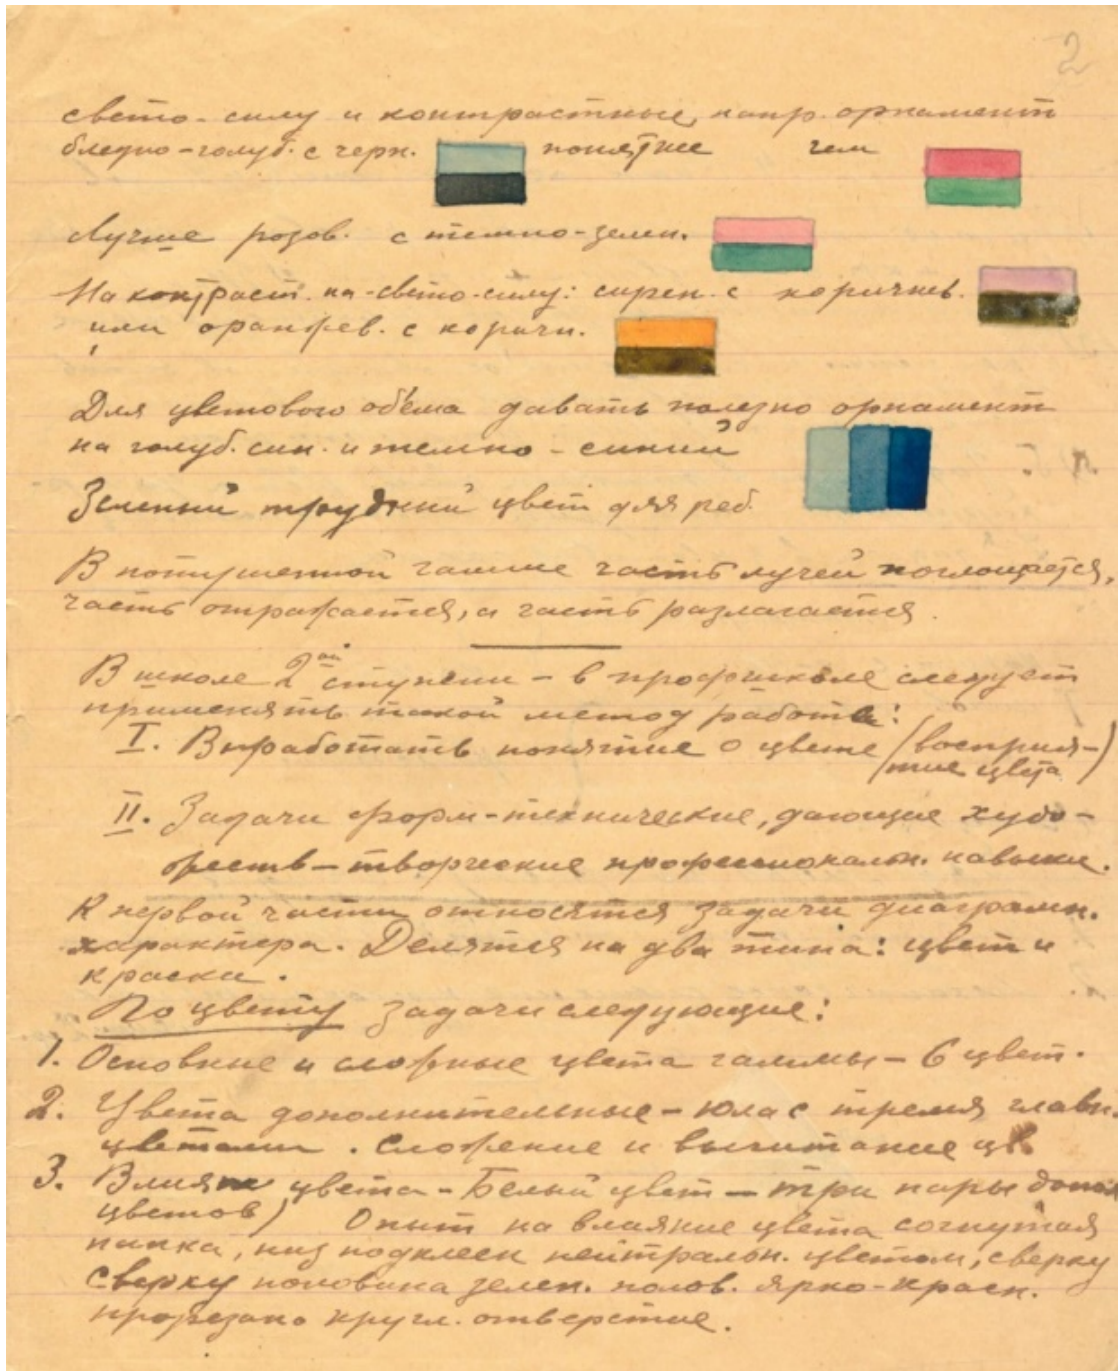 2
свето-силу и контрастные, напр. орнамент
бледно-голуб. с черн. понятнее чем
Лучше розов. с темно-зелен.
На контраст. на-свето-силу: сирен. с коричнев.
или оранжев. с коричн.
Для цветового объема давать полезно орнамент
на голуб. син. и темно-синий
Зеленый трудный цвет для реб.
В потушенной гамме часть лучей поглощается,
часть отражается, а часть разлагается.
В школе 2ой ступени – в профшколе следует
применять такой метод работы:
I. Выработать понятие о цвете (восприя-
тие цвета)
II. Задачи форм-технические, дающие худо-
жеств-творческие профессиональн. навыки.
К первой части относятся задачи диаграмн.
характера. Делятся на два типа: цвет и
краски.
По цвету задачи следующие:
1. Основные и сложные цвета гаммы – 6 цвет.
2. Цвета дополнительные – юла с тремя главн.
цветами. Сложение и вычитание цв.
3. Влиян цвета – Белый цвет – три пары допол
цветов) Опыт на влияние цвета согнутая
папка, низ подклеен нейтральн. цветом, сверху
сверху половина зелен. полов. ярко-красн.
прорезано кругл. отверстие.